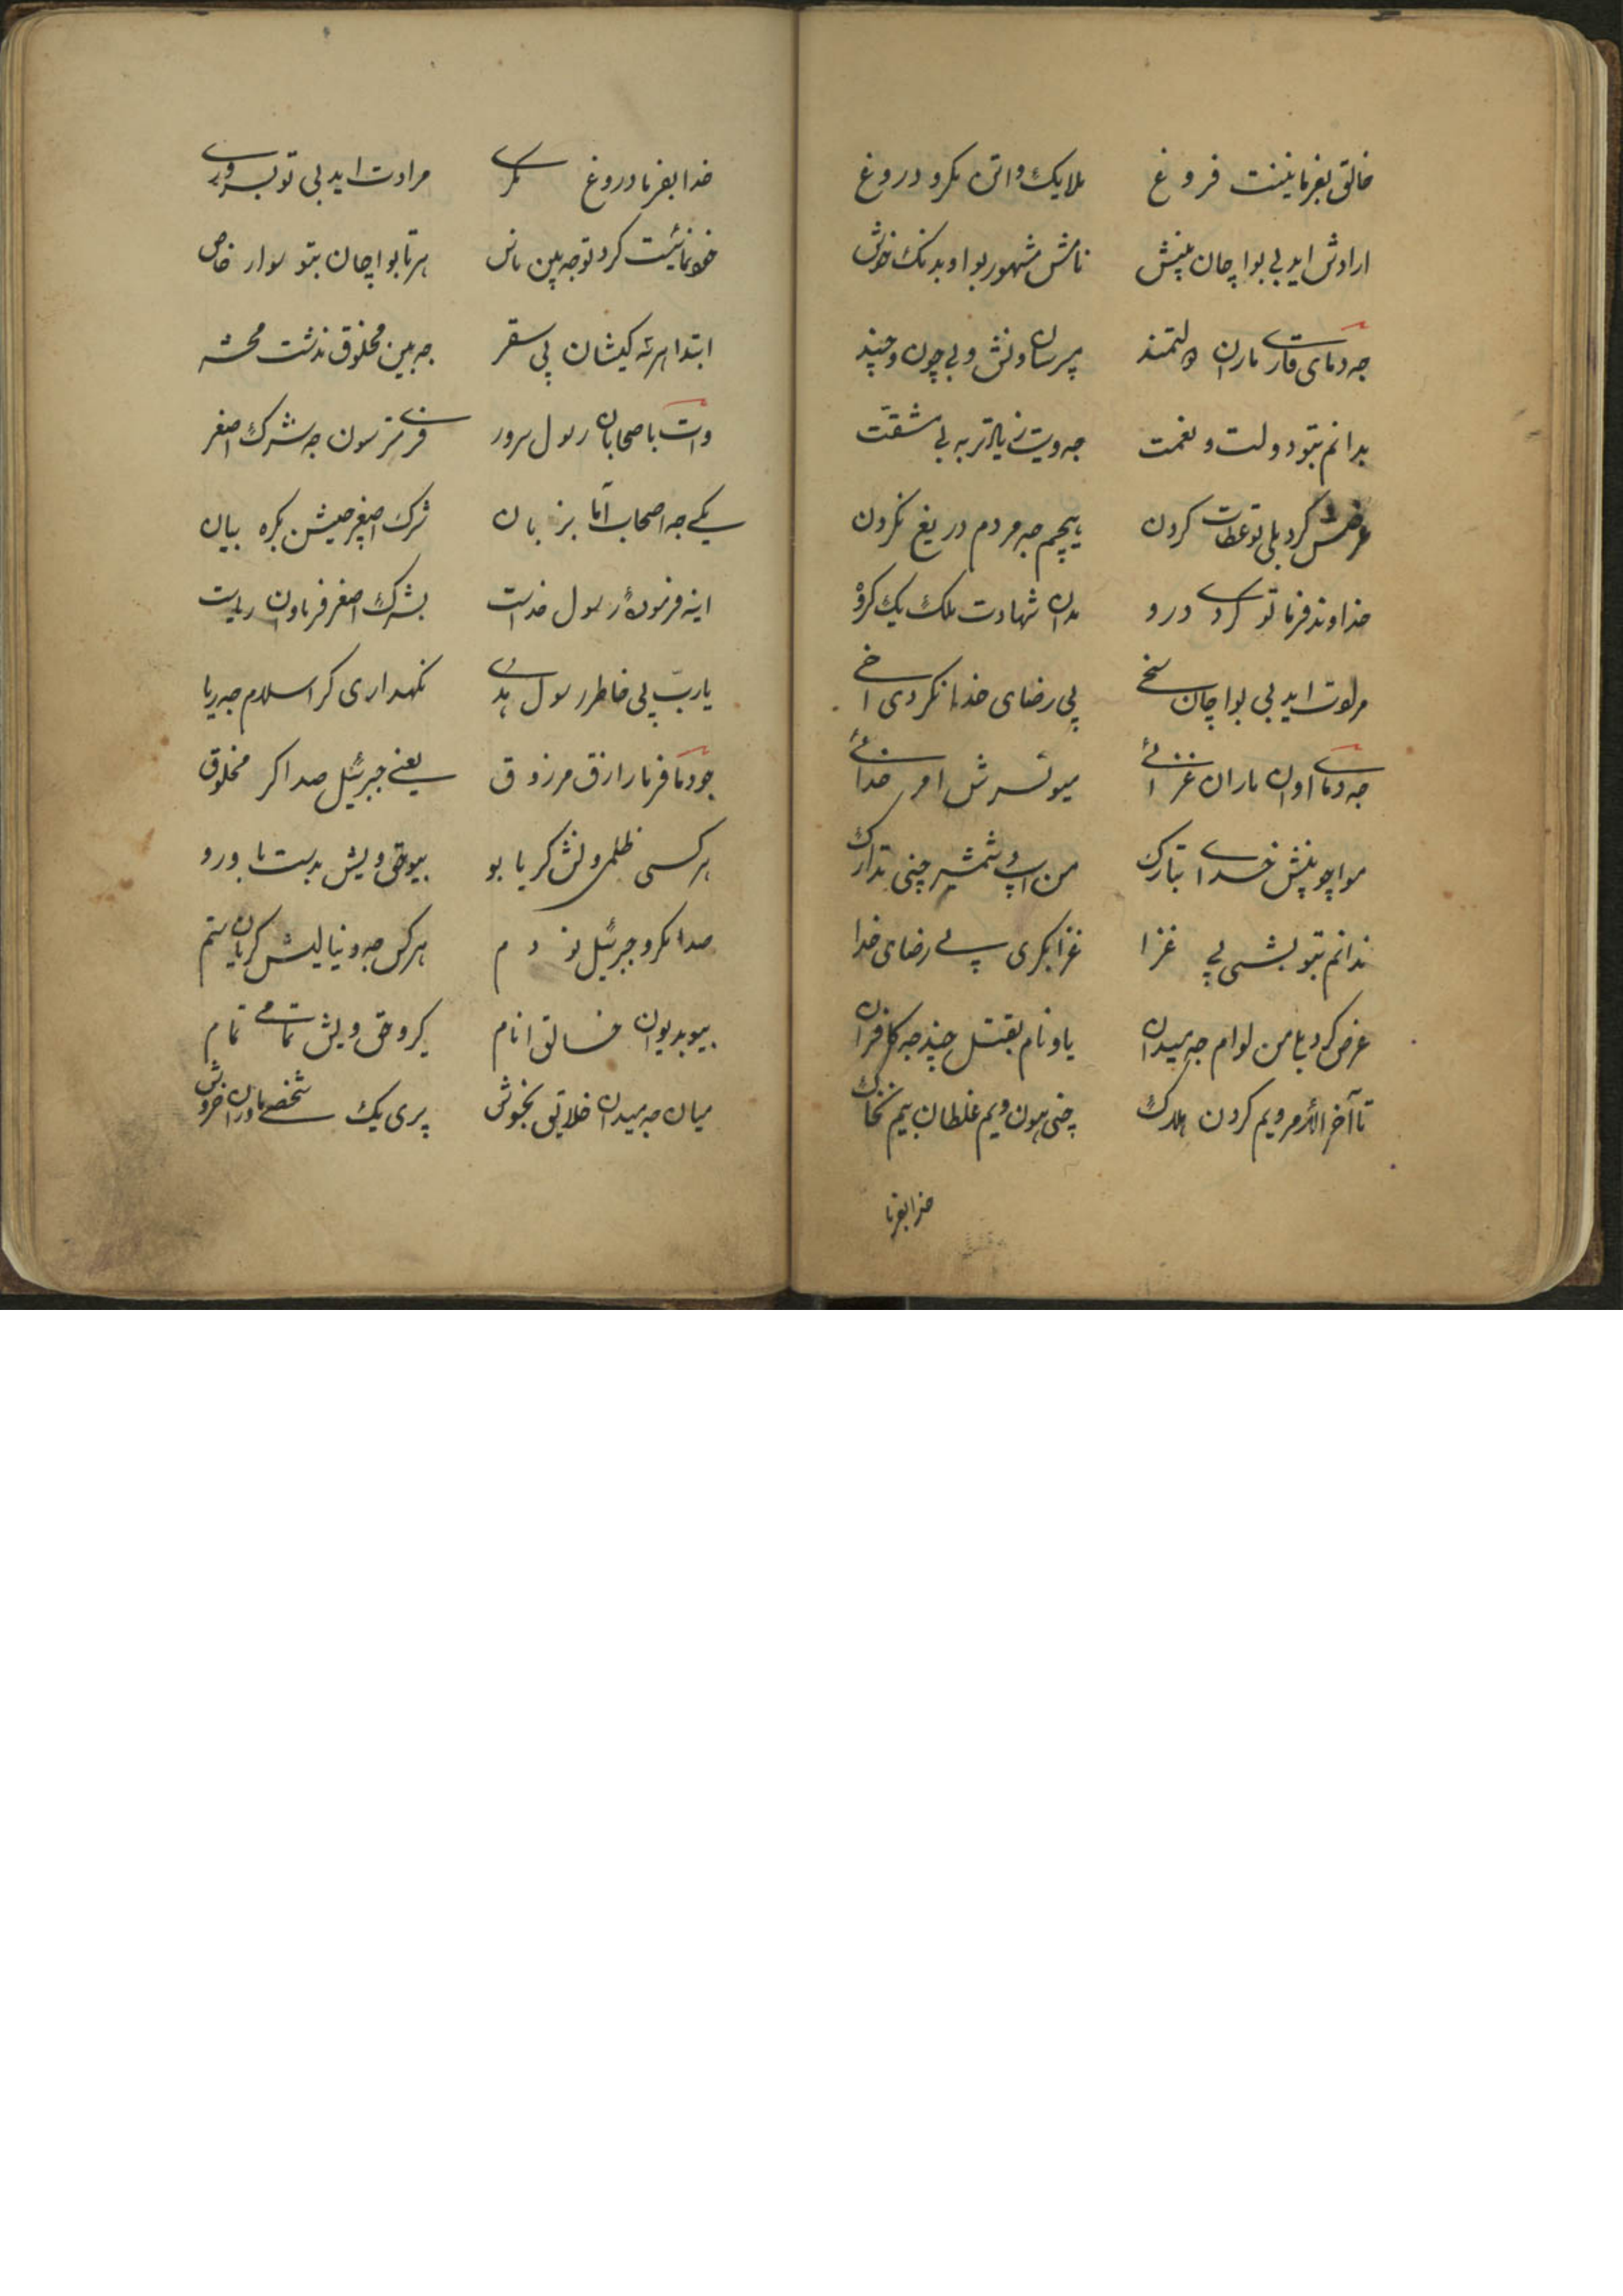 خالق بفرما نینت فروغ ملایک واتن مکرو دروغ
ارادش اید بی بواچان پینش نامش مشهور بو او بدنک خوش
جه دمای قاری مارن دولتمند پرسان ونش و بی چون و چند
بدانم بتو دولت و نعمت جه ویت زیاتر به بی مشقت
عرضش کرد بلی تو عطات کردن هیچم جه مردم دریغ نکردن
خداوند فرما تو کردی درو مدان شهادت ملک یک کرو
مرادت اید بی بواچان سخی پی رضای خدا نکردی اخی
جه دمای اون ماران غزائی میو نسرش امر خدائی
مواچو پینش خدای تبارک من اسپ و شمشیر چنی تدارک
ندانم بتو بشی پی غزا غزا بکری پی رضای خدا
عرض کرد یا من لوام جه میدان یاونام بقتل چند جه کافران
تا آخر الأمر ویم کردن هلاک چنی هون ویم غلطان بیم نخاک
خدا بفرما
خدا بفرما دروغ مکری مرادت اید بی تو بسروری
خونمائیت کرد تو جه بین ناس هر تا بواچان بتو سوار خاص
ابتدا هر سه کیشان پی سقر جه بین مخلوق نه دشت محشر
وات با صحابان رسول سرور فری مترسون جه شرک اصغر
یکی جه اصحاب اما بزبان شرک اصغر چیشن بکره بیان
اینه فرمودهٔ رسول خداست بشرک اصغر فرماون ریاست
یارب پی خاطر رسول هدی نکهداری کر اسلام جه ریا
جو دما فرما رازق مرزوق یعنی جبرئیل صدا کر مخلوق
هر کسی ظلمی ونش کریا بو بیو حق ویش بدست باورو
صدا مکرو جبرئیل نو دم هر کس جه دنیا لیش کریان ستم
بیو بدیوان خالق انام بکرو حق ویش تمامی تمام
میان جه میدان خلایق بخوش پری یک شخصی مادران خروش